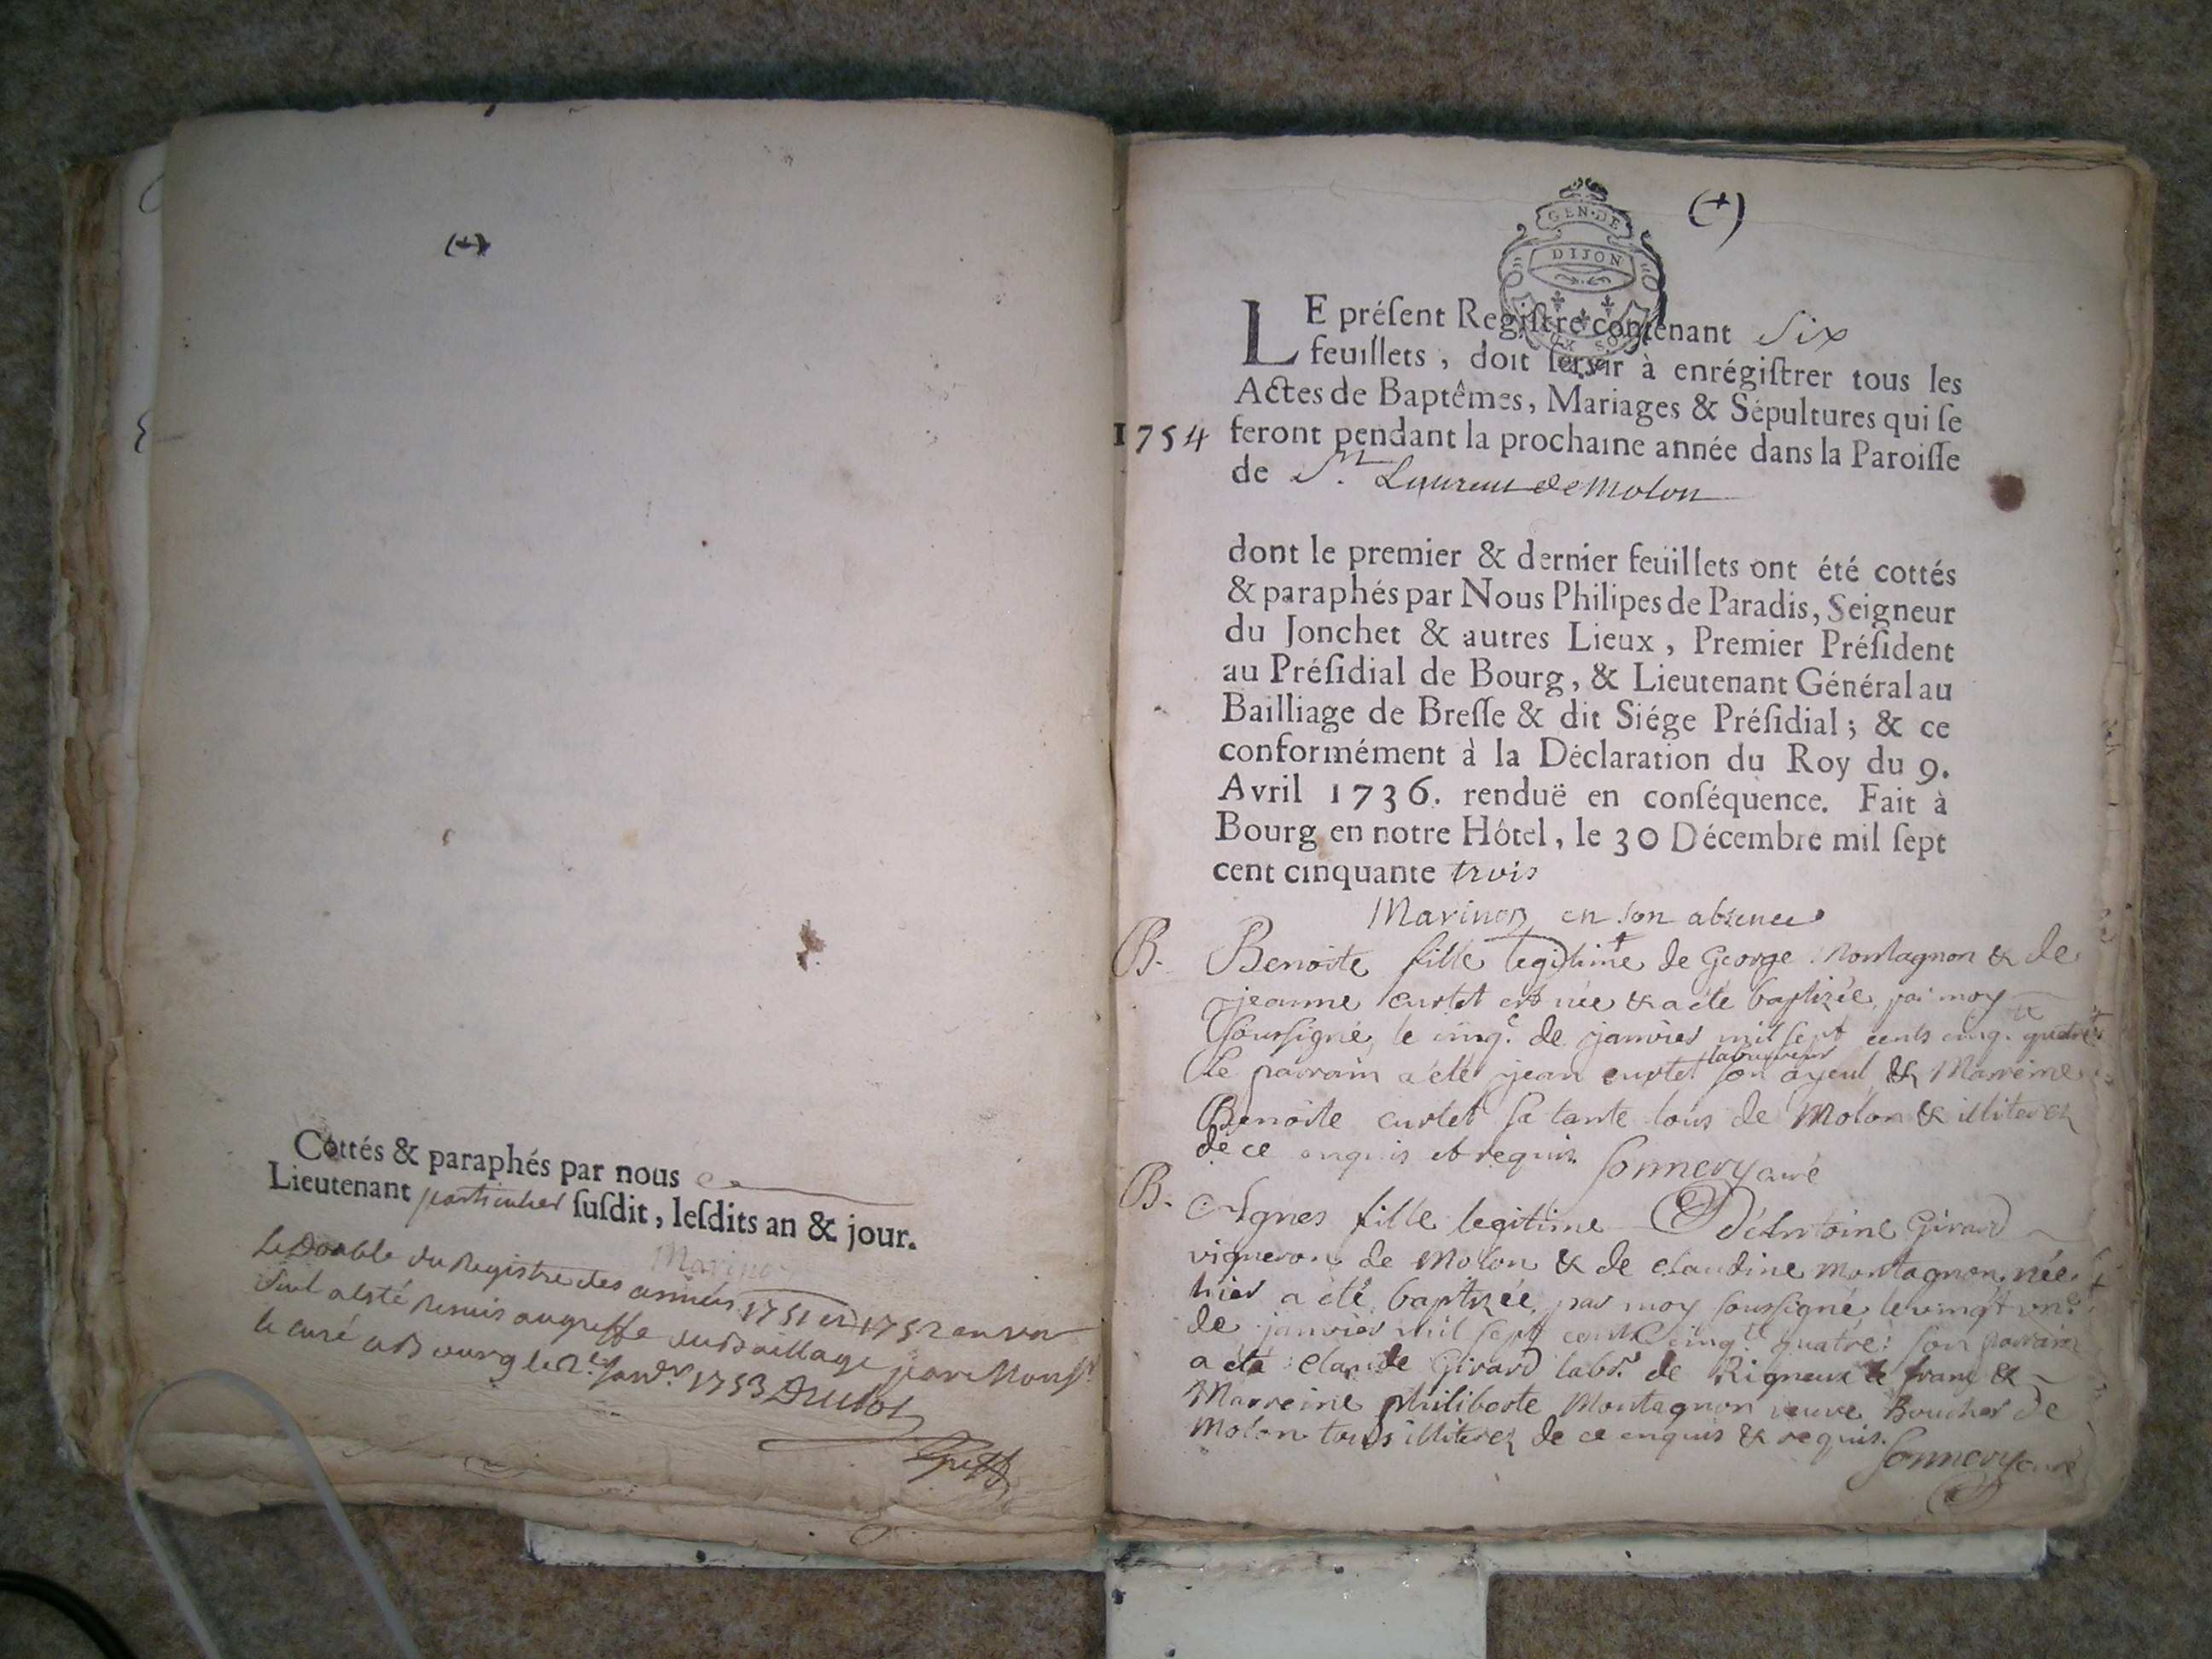 (+)
Cottés & paraphés par nous
Lieutenant particulier ſuſdit, leſdits an & jour.
Marinon
Le Double du Registre des années 1751 et 1752 en un
seul a esté remis au greffe du Bailliage par Monsr
le curé a Bourg le 2e janvr 1753
(+)
GEN·DE
DIJON
LE préſent Regiſtre contenant Six
feuillets, doit ſervir à enrégiſtrer tous les
Actes de Baptêmes, Mariages & Sépultures qui ſe
1754 feront pendant la prochaine année dans la Paroiſſe
de St. Laurent de Molon
dont le premier & dernier feüillets ont été cottés
& paraphés par Nous Philipes de Paradis, Seigneur
du Jonchet & autres Lieux, Premier Préſident
au Préſidial de Bourg, & Lieutenant Général au
Bailliage de Breſſe & dit Siége Préſidial; & ce
conformément à la Déclaration du Roy du 9.
Avril 1736. renduë en conſéquence. Fait à
Bourg en notre Hôtel, le 30 Décembre mil ſept
cent cinquante trois
Marinon en son absence
B. Benoite fille legitime de George Montagnon & de
jeanne curtet est née & a été baptizée par moy
soussigné le cinq.e de janvier mil sept cents cinq.te quatre
Le parrain a été jean curtet laboureur son ayeul & Marreine
Benoite curtet sa tante tous de Molon & illiterez
de ce enquis et requis. Sonnery curé
B. Agnes fille legitime D'Antoine Girard
vigneron de Molon & de claudine montagnon née
hier a été baptizée par moy soussigné le vingt un.e
de janvier mil sept cents cinq.te quatre: son parrain
a été claude Girard labr. de Rigneux le franc &
Marreine philiberte Montagnon veuve Boucher de
Molon tous illiterez de ce enquis & requis.
Sonnery curé